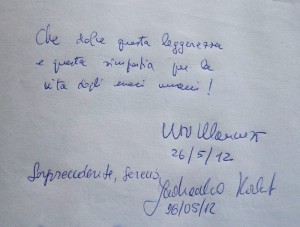 Che dolce questa leggerezza
e questa simpatia per la
vita degli esseri umani!
26/5/12
Sorprendente, sereno
26/05/12